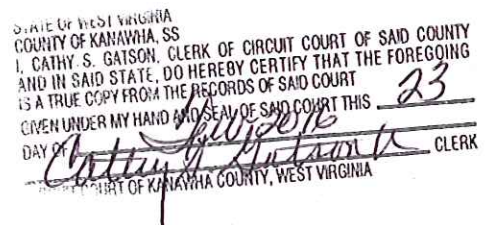 STATE OF WEST VIRGINIA
COUNTY OF KANAWHA, SS
I, CATHY S. GATSON, CLERK OF CIRCUIT COURT OF SAID COUNTY
AND IN SAID STATE, DO HEREBY CERTIFY THAT THE FOREGOING
IS A TRUE COPY FROM THE RECORDS OF SAID COURT
GIVEN UNDER MY HAND AND SEAL OF SAID COURT THIS 23
DAY OF 2016
Cathy S. Gatson CLERK
COURT OF KANAWHA COUNTY, WEST VIRGINIA